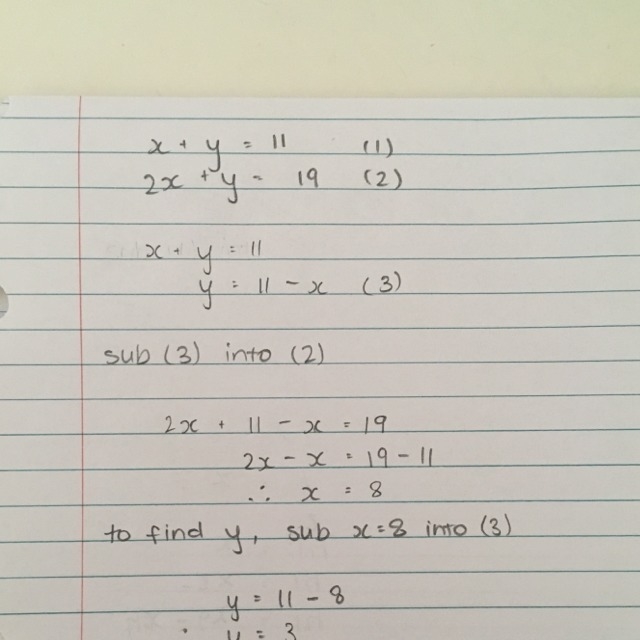 x + y = 11 (1)
2x + y = 19 (2)
x + y = 11
y = 11 - x (3)
sub (3) into (2)
2x + 11 - x = 19
2x - x = 19 - 11
∴ x = 8
to find y, sub x=8 into (3)
y = 11 - 8
y = 3